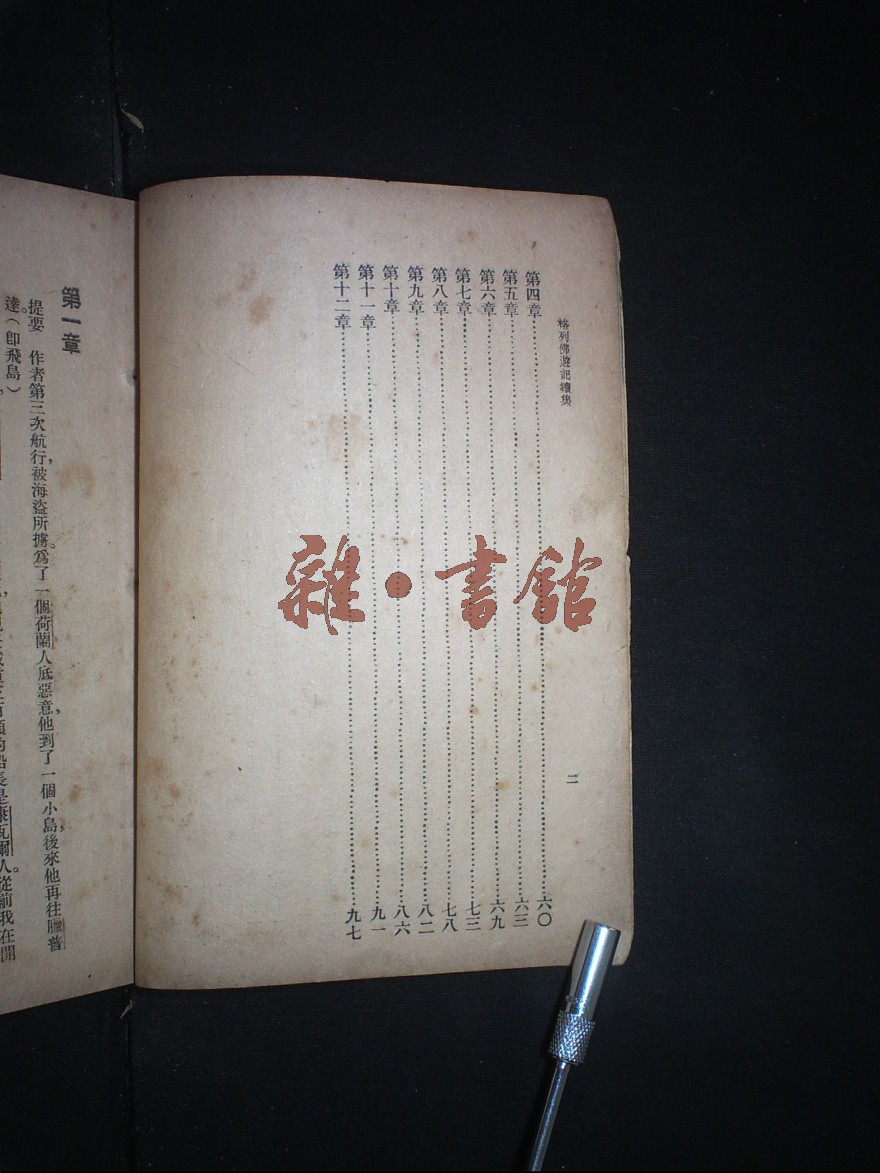 格列佛遊記續集
二
第四章……六〇
第五章……六三
第六章……六九
第七章……七三
第八章……七八
第九章……八二
第十章……八六
第十一章……九一
第十二章……九七
第一章
提要 作者第三次航行，被海盜所擄。爲了一個荷蘭人底惡意，他到了一個小島，後來他再往
達（卽飛島）。
船長是康瓦爾人。從前我在開
雜·書館